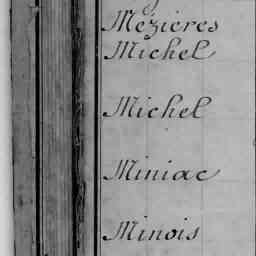 Mézières
Michel
Michel
Miniac
Minois